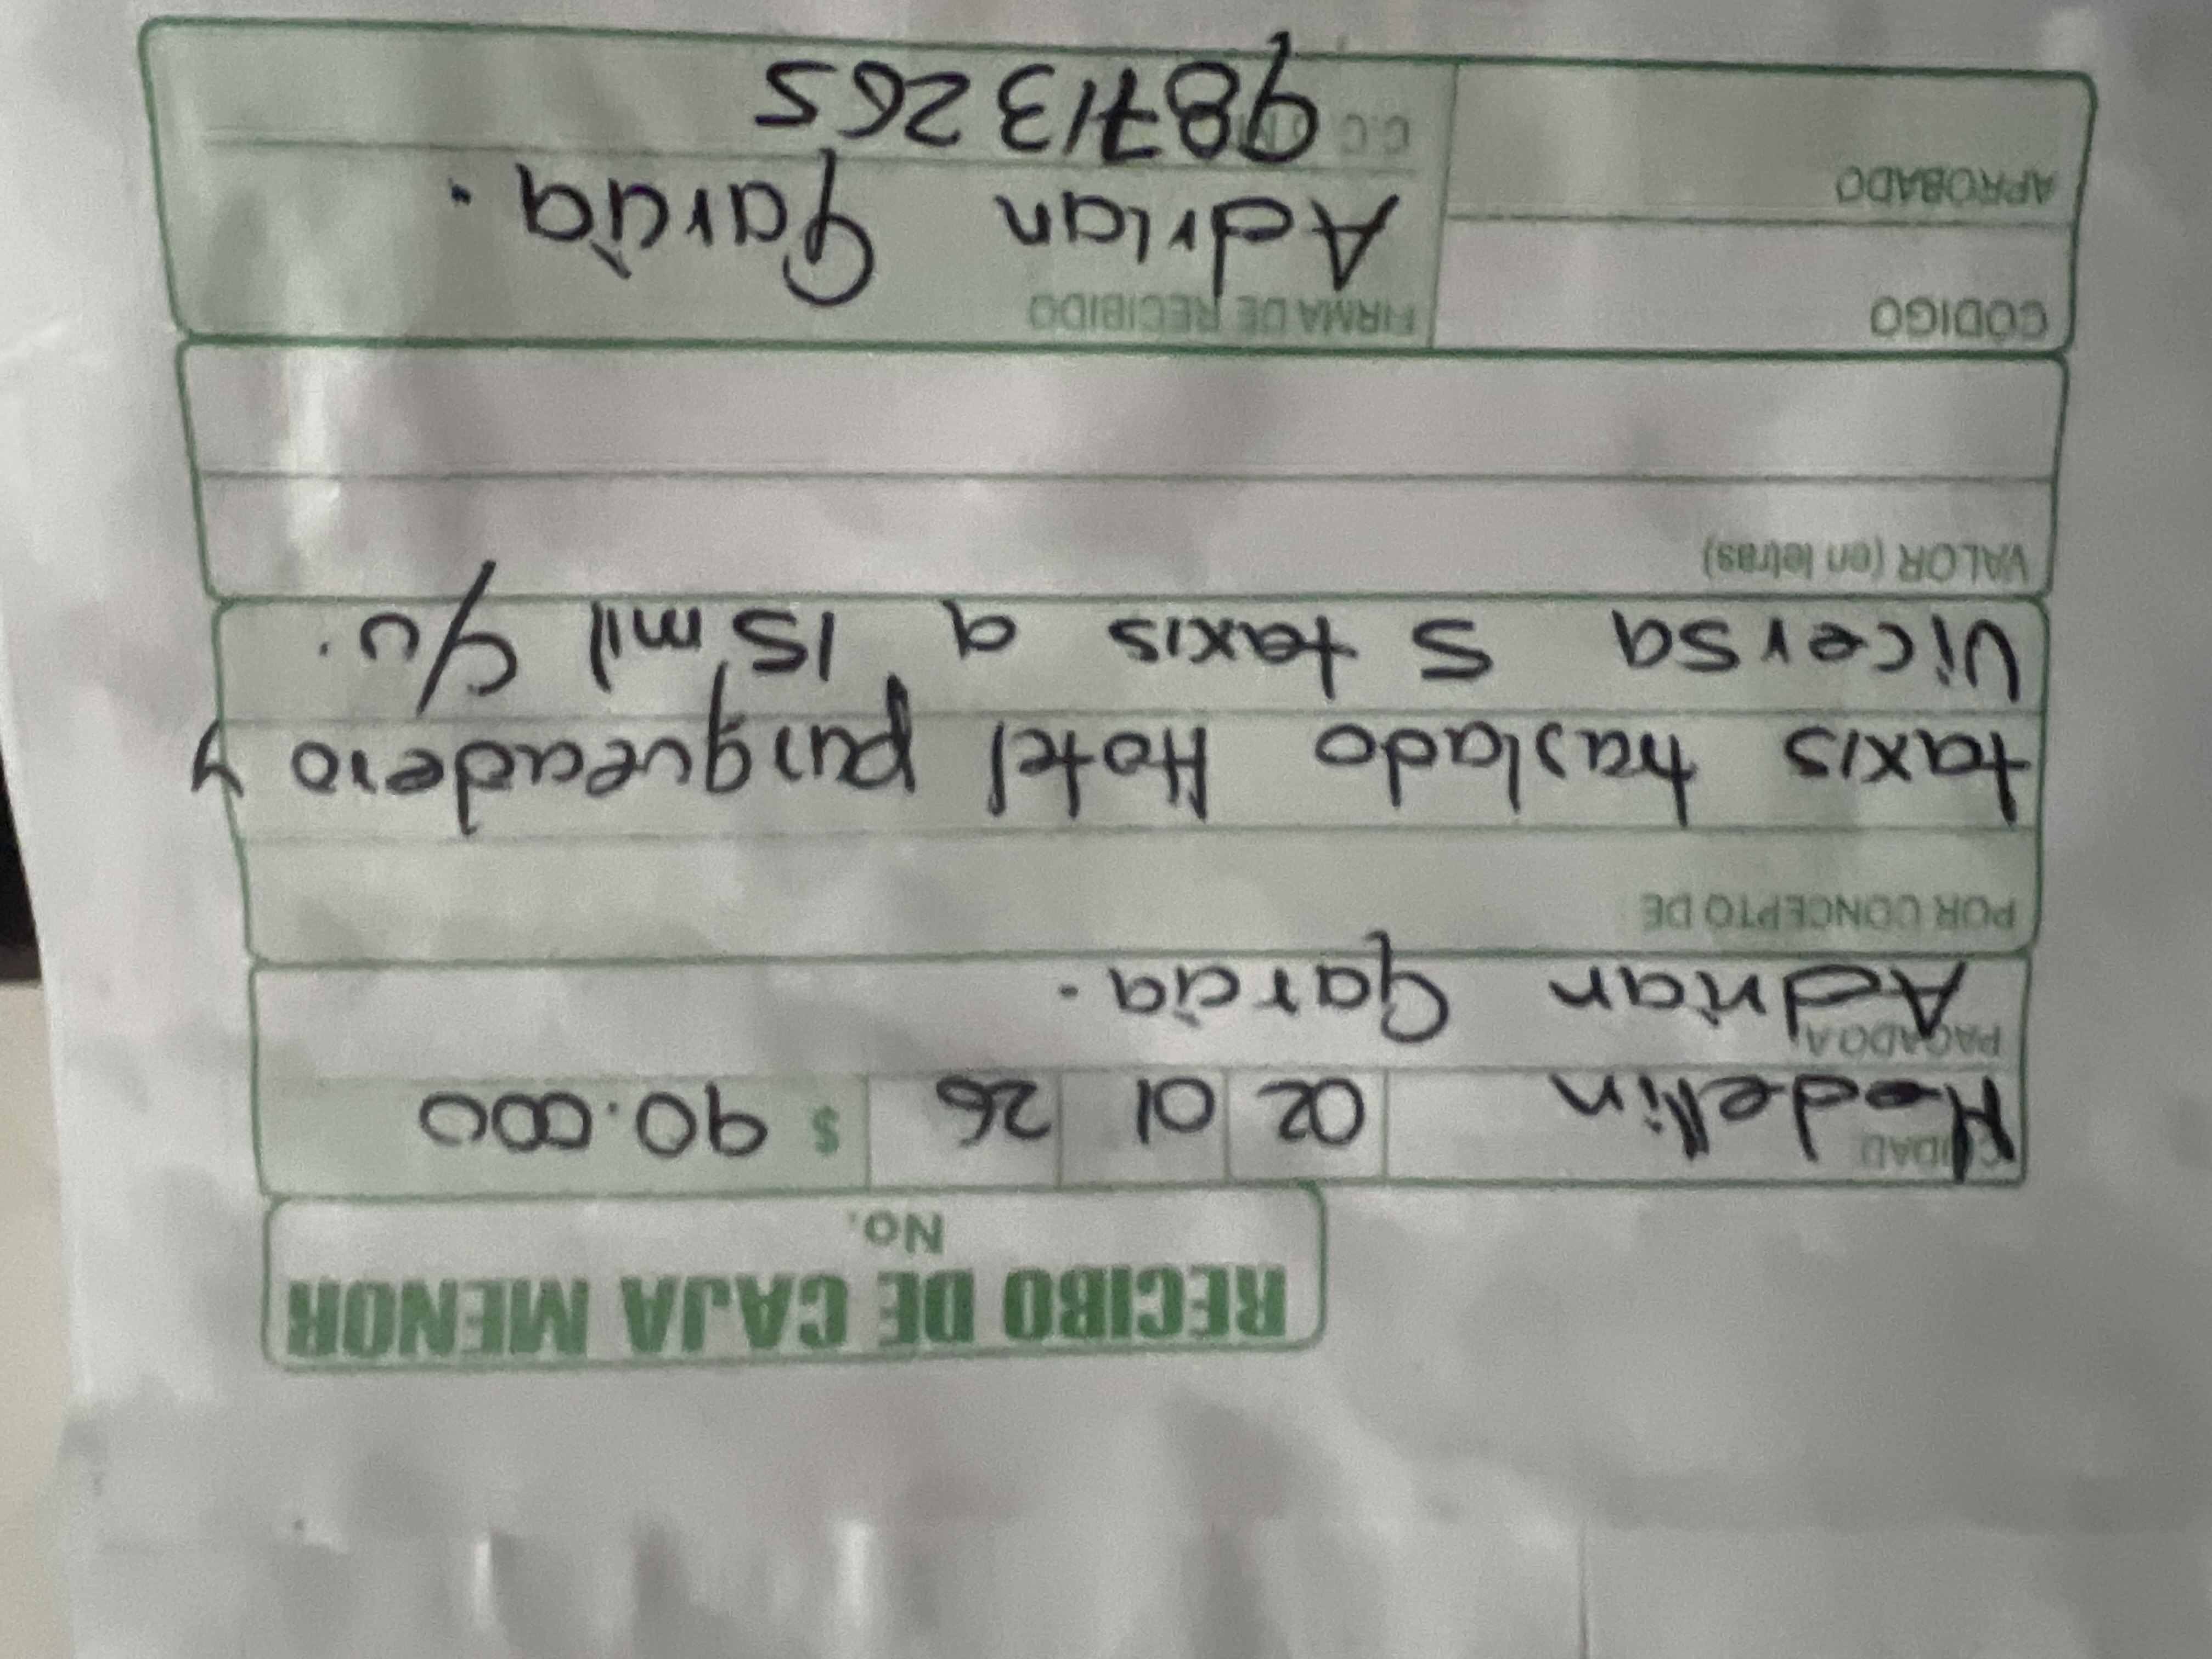 RECIBO DE CAJA MENOR
No.
CIUDAD Medellin 02 01 26 $ 90.000
PAGADO A
Adrian Garcia.
POR CONCEPTO DE
taxis traslado Hotel parqueadero y
Vicersa 5 taxis a 15 mil c/u.
VALOR (en letras)
CÓDIGO
FIRMA DE RECIBIDO
Adrian Garcia.
APROBADO
C.C. 98713265